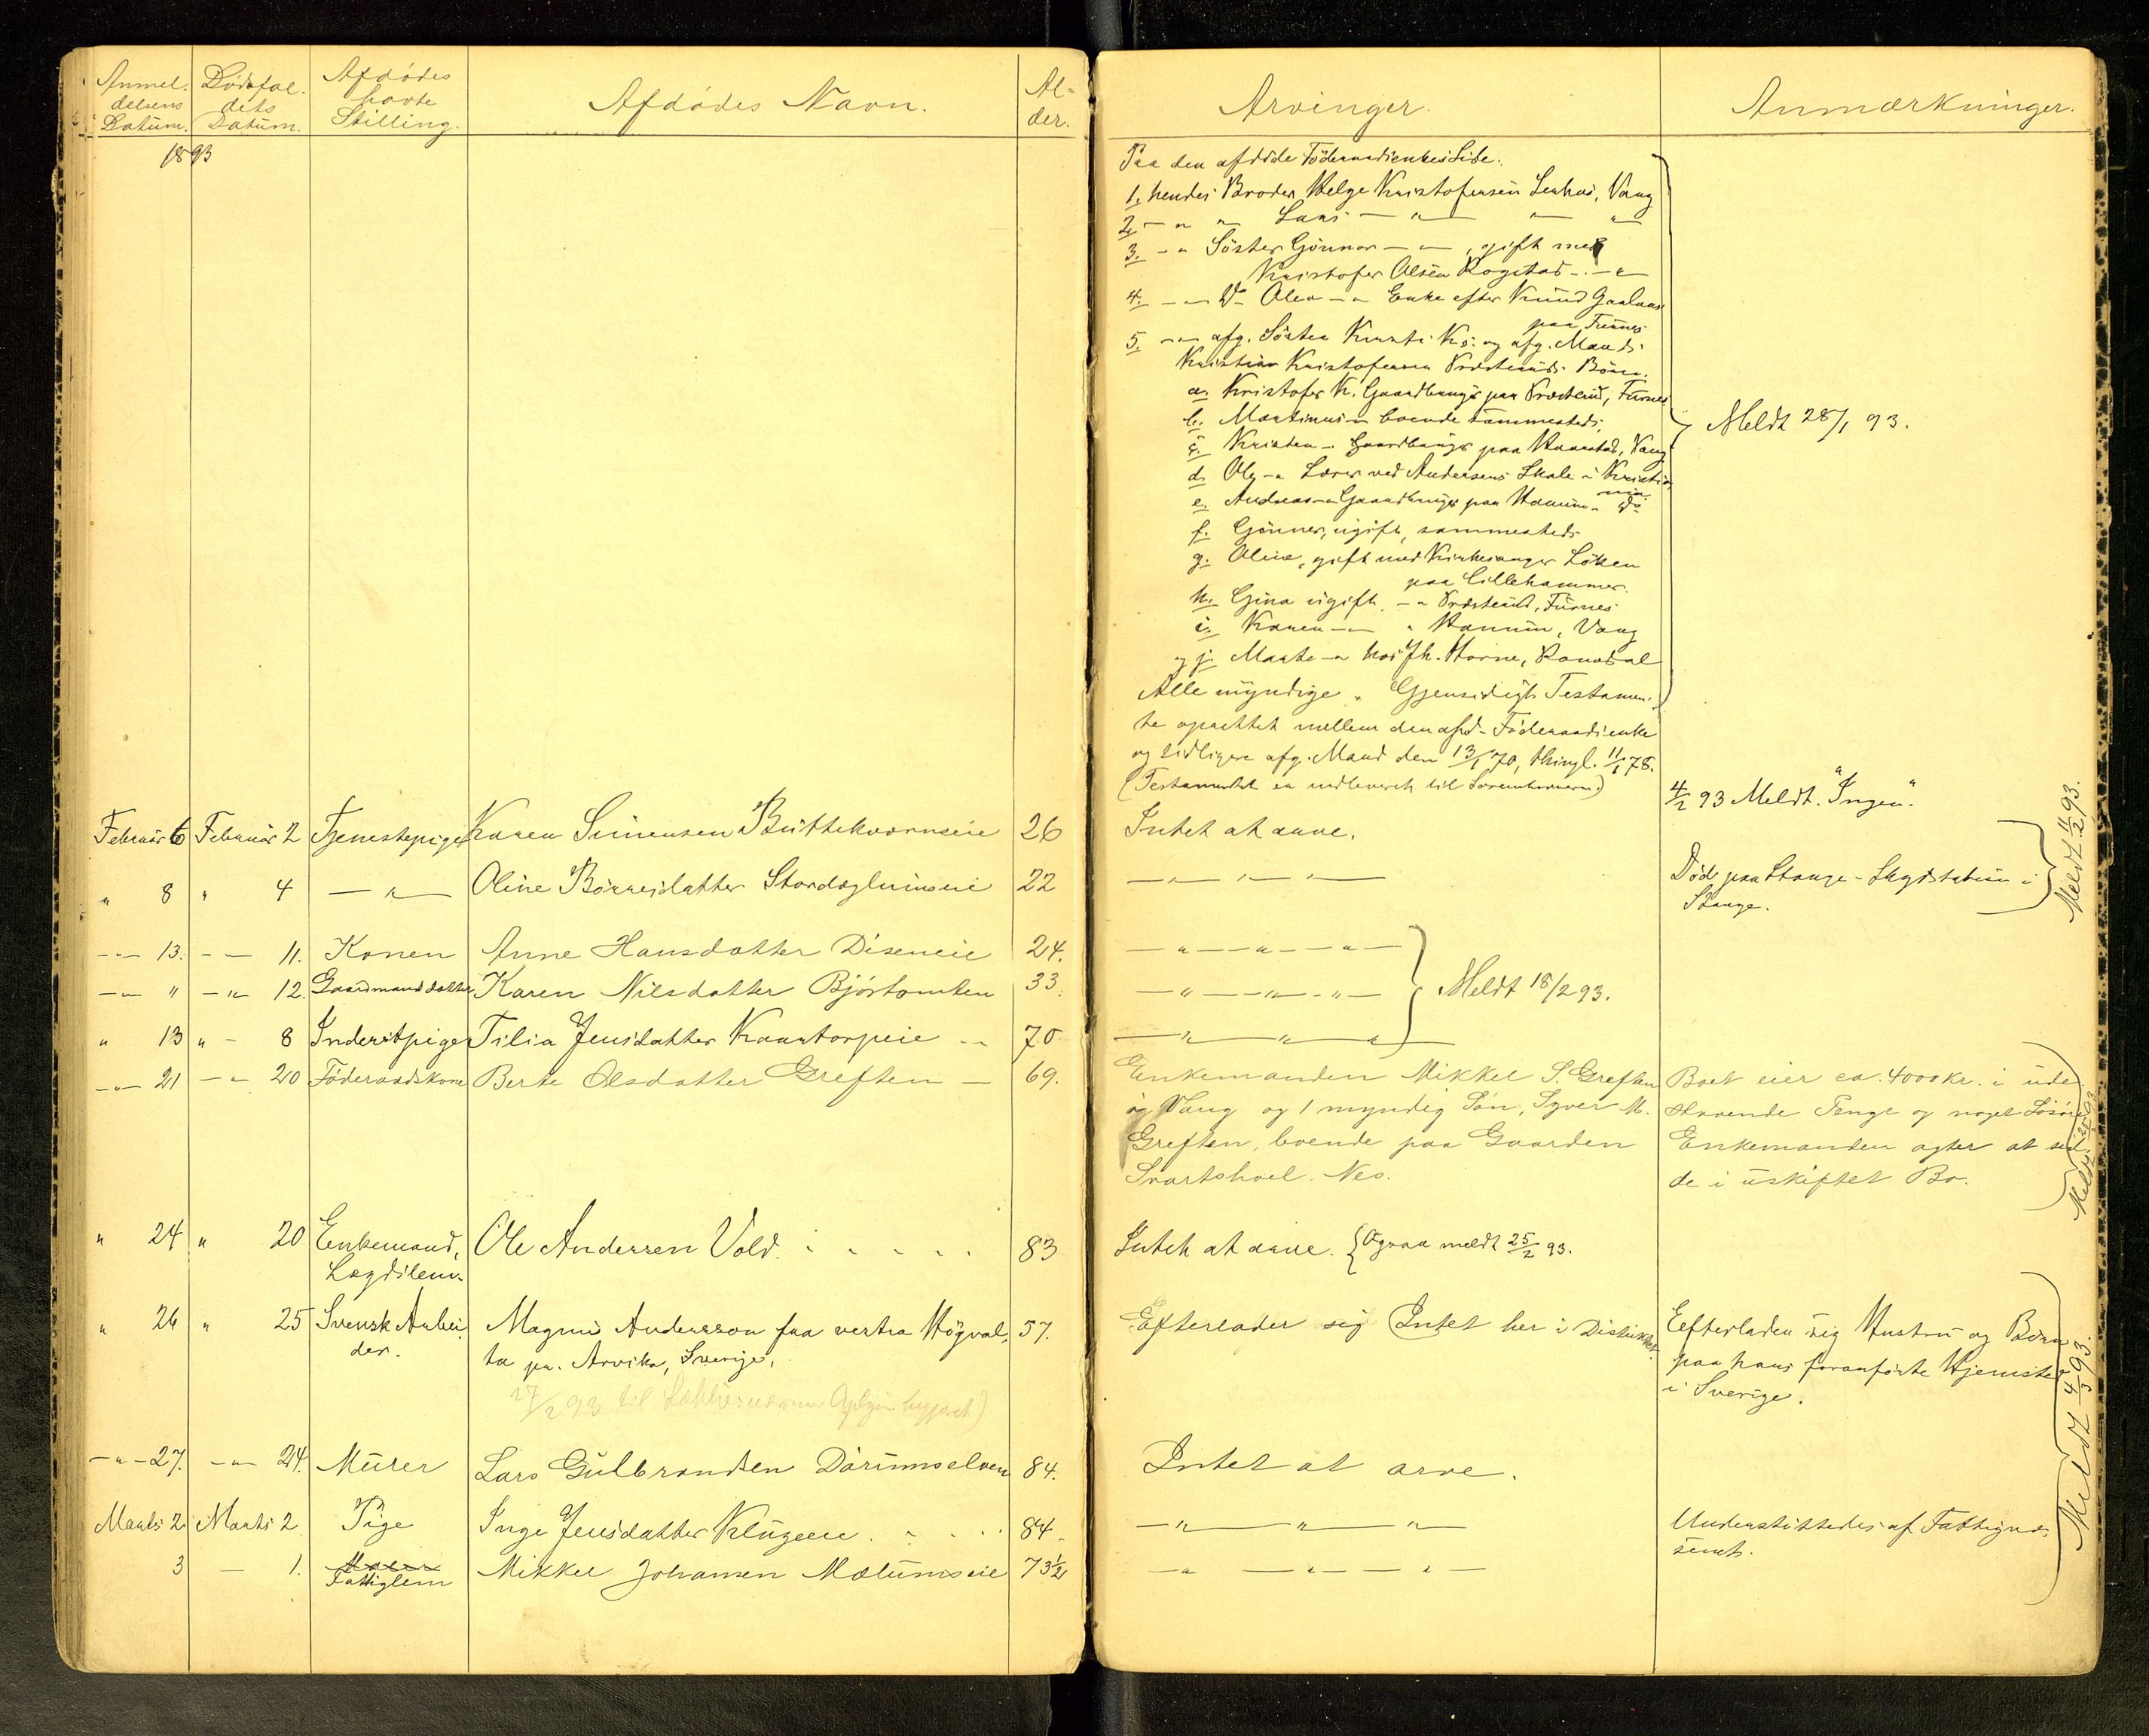 Anmel-
delsens
Datum.
Dödsfal-
dets
Datum.
Afdödes
havte
Stilling.
Afdödes Navn.
Al-
der.
Arvinger.
Anmærkninger.
1893
Paa den afdöde Föderaadsenkes Side:
1. hendes Broder Helge Kristofersen Lenhus, Vang
2. - " " Lars - " - " - "
3. - " Söster Gönnor - " - , gift med
Kristofer Olsen Rogstad - " -
4. - " - Do Olea - " Enke efter Knud Gaalaas
paa Furnes
5. - " - afg. Söster Kersti Ks. og afg. Mands
Kristian Kristofersen Vrdsteuds Börn:
a. Kristofer K. Gaardbruger paa Furnes
b. Martinus " boende sammesteds,
c. Kristen " Gaardbruger paa Vang
d. Ole " Lærer ved Andersens Skole i Kristia-
nia
e. Andreas " Gaardbruger paa Hanum " Do
f. Gönner, ugift, sammesteds
g. Oline, gift med Kirkesanger Löken
paa Lillehammer.
h. Gina ugift. - " Furnes
i. Karen - " - " Hanum, Vang
og j. Marte - " hos Jh. Horne, Romsdal
Alle myndige. Gjensidigt Testamen-
te oprettet mellem den afd. Föderaadsenke
og tidligere afg. Mand den 13/1 70, thingl. 11/1 78.
(Testamentet er indleveret til Sorenskriveren)
Meldt 28/1 93.
4/2 93 Meldt. "Ingen".
Februar 6 Februar 2 Tjenestepige Karen Simensen Buttekvernseie 26 Intet at arve.
" 8 " 4 - " - Oline Börresdatter 22 - " - " -
Död paa Stange - Lægdstation i
Stange.
Meldt 11/2 93.
- " - 13. - " - 11. Konen Anne Hansdatter Diseneie 24. - " - " - " -
- " - " - " - 12. Gaardmandsdatter Karen Nilsdatter Björtomten 33. - " - " - " - Meldt 18/2 93.
" 13 " - 8 Inderstpige Tilia Jensdatter Kaatorpeie - - 70 - " - " - " -
- " - 21 - " - 20 Föderaadskone Berte Olsdatter Greften - 69. Enkemanden Mikkel S. Greften
i Vang og 1 myndig Sön, Syver M.
Greften, boende paa Gaarden
Svartshoel. Nes.
Boet eier ca. 4000 kr. i ude-
staaende Penge og noget Lösöre
Enkemanden agter at sid-
de i uskiftet Bo.
Meldt 25/2 93
" 24 " 20 Enkemand,
Lægdslem. Ole Andersen Vold 83 Intet at arve. { Ogsaa meldt 25/2 93.
" 26 " 25 Svensk Arbei-
der. Magnus Andersson fra vestra Högval-
ta pr. Arvika, Sverige, 57. Efterlader sig Intet her i Distriktet.
Eefterladen sig Hustru og Börn
paa hans foranförte Hjemsted
i Sverige.
27/2 93 til
- " - 27. - " - 24. Murer Lars Gulbrandsen Dörumselven 84. Intet at arve.
Marts 2 Marts 2 Pige Inge Jensdatter Klugeie 84 - " - " - " -
Understöttedes af Fattigvæ-
senet.
3 - 1. Murer
Fattiglem Mikkel Johansen Mælumseie 73½ - " - " - " -
Meldt 4/3 93.